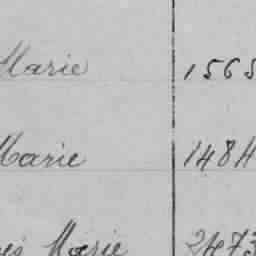 Marie 1565
Marie 1484
Marie 2473